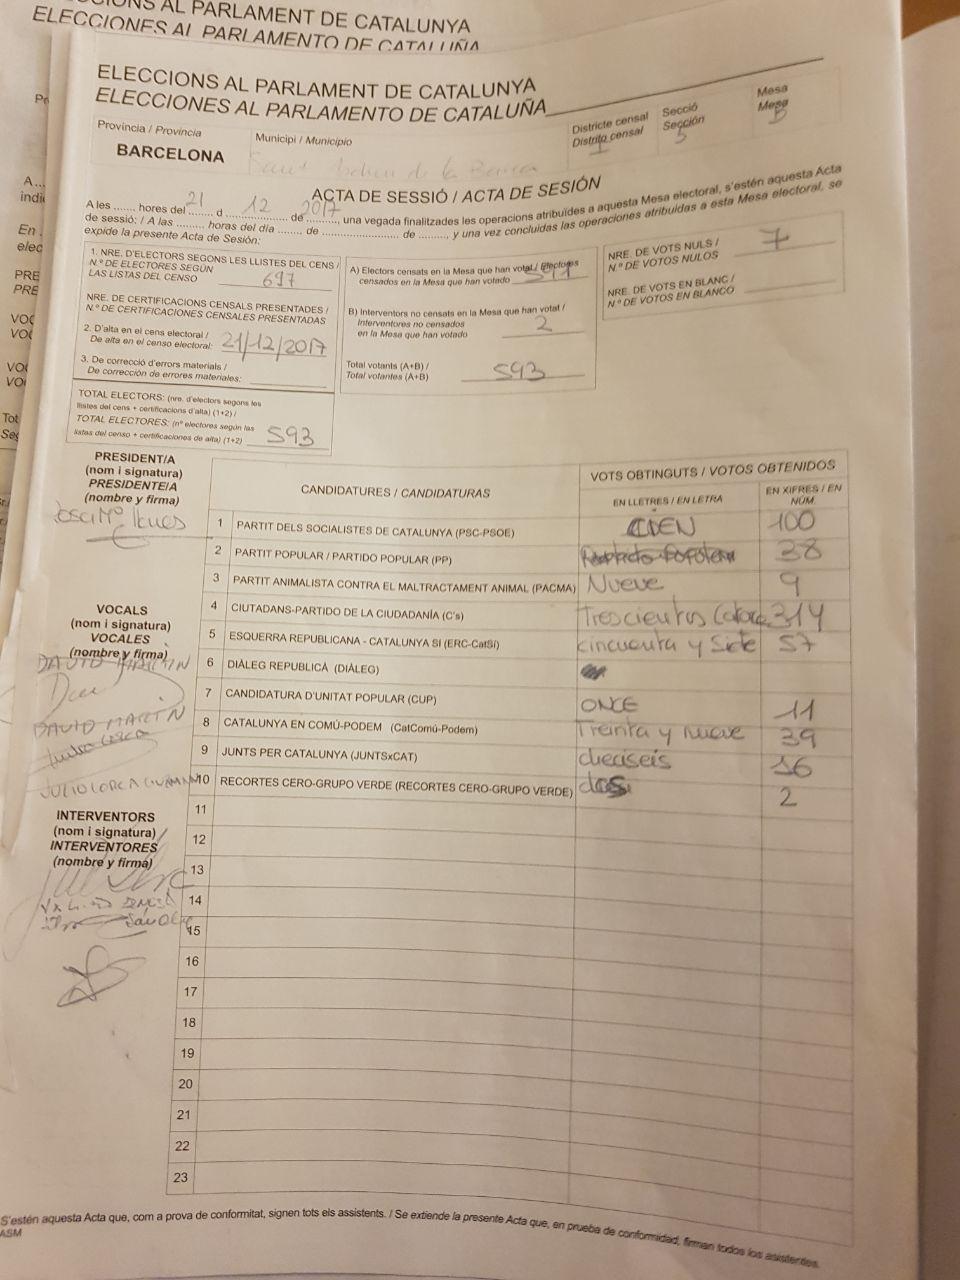 ELECCIONS AL PARLAMENT DE CATALUNYA
ELECCIONES AL PARLAMENTO DE CATALUÑA
ELECCIONS AL PARLAMENT DE CATALUNYA
ELECCIONES AL PARLAMENTO DE CATALUÑA
Provincia / Provincia
BARCELONA
Municipi / Municipio
de la Barca
Districte censal
Distrito censal
1
Secció
Sección
5
Mesa
Mesa
B
ACTA DE SESSIÓ / ACTA DE SESIÓN
A les ....... hores del 21 d 12 de 2017, una vegada finalitzades les operacions atribuïdes a aquesta Mesa electoral, s'estén aquesta Acta
de sessió: / A las ......... horas del día ....... de ...................... de ........, y una vez concluidas las operaciones atribuidas a esta Mesa electoral, se
expide la presente Acta de Sesión:
1. NRE. D'ELECTORS SEGONS LES LLISTES DEL CENS /
N.º DE ELECTORES SEGÚN
LAS LISTAS DEL CENSO 697
NRE. DE CERTIFICACIONS CENSALS PRESENTADES /
N.º DE CERTIFICACIONES CENSALES PRESENTADAS
2. D'alta en el cens electoral /
De alta en el censo electoral: 21/12/2017
3. De correcció d'errors materials /
De corrección de errores materiales:
TOTAL ELECTORS: (nre. d'electors segons les
llistes del cens + certificacions d'alta) (1+2) /
TOTAL ELECTORES: (nº electores según las
listas del censo + certificaciones de alta) (1+2) 593
A) Electors censats en la Mesa que han votat / Electores
censados en la Mesa que han votado 591
B) Interventors no censats en la Mesa que han votat /
Interventores no censados
en la Mesa que han votado 2
Total votants (A+B) /
Total votantes (A+B) 593
NRE. DE VOTS NULS /
N.º DE VOTOS NULOS 7
NRE. DE VOTS EN BLANC /
N.º DE VOTOS EN BLANCO
PRESIDENT/A
(nom i signatura)
PRESIDENTE/A
(nombre y firma)
VOCALS
(nom i signatura)
VOCALES
(nombre y firma)
DAVID MARTIN
DAVID MARTIN
INTERVENTORS
(nom i signatura)
INTERVENTORES
(nombre y firma)
CANDIDATURES / CANDIDATURAS
VOTS OBTINGUTS / VOTOS OBTENIDOS
EN LLETRES / EN LETRA
EN XIFRES / EN NÚM.
1 PARTIT DELS SOCIALISTES DE CATALUNYA (PSC-PSOE) CIEN 100
2 PARTIT POPULAR / PARTIDO POPULAR (PP) 38
3 PARTIT ANIMALISTA CONTRA EL MALTRACTAMENT ANIMAL (PACMA) Nueve 9
4 CIUTADANS-PARTIDO DE LA CIUDADANÍA (C's) Trescientos Catorce 314
5 ESQUERRA REPUBLICANA - CATALUNYA SÍ (ERC-CatSí) cincuenta y Siete 57
6 DIÀLEG REPUBLICÀ (DIÀLEG)
7 CANDIDATURA D'UNITAT POPULAR (CUP) ONCE 11
8 CATALUNYA EN COMÚ-PODEM (CatComú-Podem) Treinta y nueve 39
9 JUNTS PER CATALUNYA (JUNTSxCAT) dieciseis 16
10 RECORTES CERO-GRUPO VERDE (RECORTES CERO-GRUPO VERDE) dos 2
11
12
13
14
15
16
17
18
19
20
21
22
23
S'estén aquesta Acta que, com a prova de conformitat, signen tots els assistents. / Se extiende la presente Acta que, en prueba de conformidad, firman todos los asistentes.
ASM